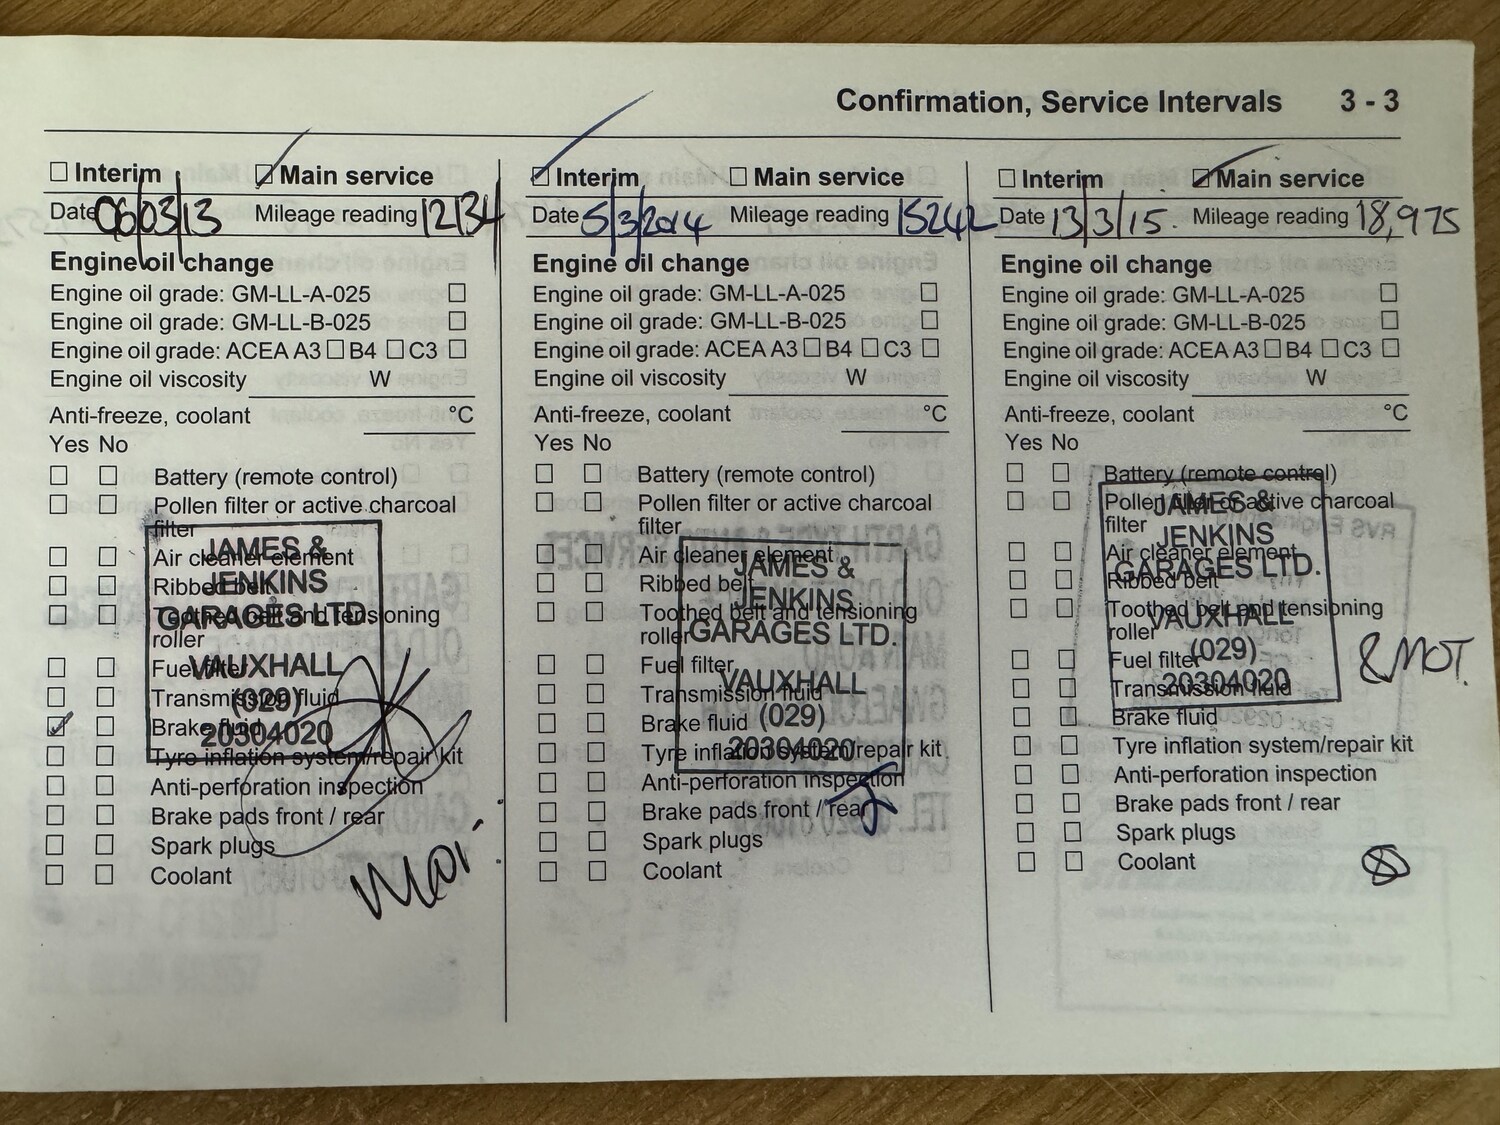 Confirmation, Service Intervals 3 - 3
Interim Main service
Date 06/03/13 Mileage reading 12134
Engine oil change
Engine oil grade: GM-LL-A-025
Engine oil grade: GM-LL-B-025
Engine oil grade: ACEA A3 B4 C3
Engine oil viscosity W
Anti-freeze, coolant °C
Yes No
Battery (remote control)
Pollen filter or active charcoal
filter
Air cleaner element
Ribbed belt
Toothed belt and tensioning
roller
Fuel filter
Transmission fluid
Brake fluid
Tyre inflation system/repair kit
Anti-perforation inspection
Brake pads front / rear
Spark plugs
Coolant
JAMES &
JENKINS
GARAGES LTD.
VAUXHALL
(029)
20304020
Interim Main service
Date 5/3/2014 Mileage reading 15242
Engine oil change
Engine oil grade: GM-LL-A-025
Engine oil grade: GM-LL-B-025
Engine oil grade: ACEA A3 B4 C3
Engine oil viscosity W
Anti-freeze, coolant °C
Yes No
Battery (remote control)
Pollen filter or active charcoal
filter
Air cleaner element
Ribbed belt
Toothed belt and tensioning
roller
Fuel filter
Transmission fluid
Brake fluid
Tyre inflation system/repair kit
Anti-perforation inspection
Brake pads front / rear
Spark plugs
Coolant
JAMES &
JENKINS
GARAGES LTD.
VAUXHALL
(029)
20304020
Interim Main service
Date 13/3/15. Mileage reading 18,975
Engine oil change
Engine oil grade: GM-LL-A-025
Engine oil grade: GM-LL-B-025
Engine oil grade: ACEA A3 B4 C3
Engine oil viscosity W
Anti-freeze, coolant °C
Yes No
Battery (remote control)
Pollen filter or active charcoal
filter
Air cleaner element
Ribbed belt
Toothed belt and tensioning
roller
Fuel filter
Transmission fluid
Brake fluid
Tyre inflation system/repair kit
Anti-perforation inspection
Brake pads front / rear
Spark plugs
Coolant
JAMES &
JENKINS
GARAGES LTD.
VAUXHALL
(029)
20304020
& MOT.